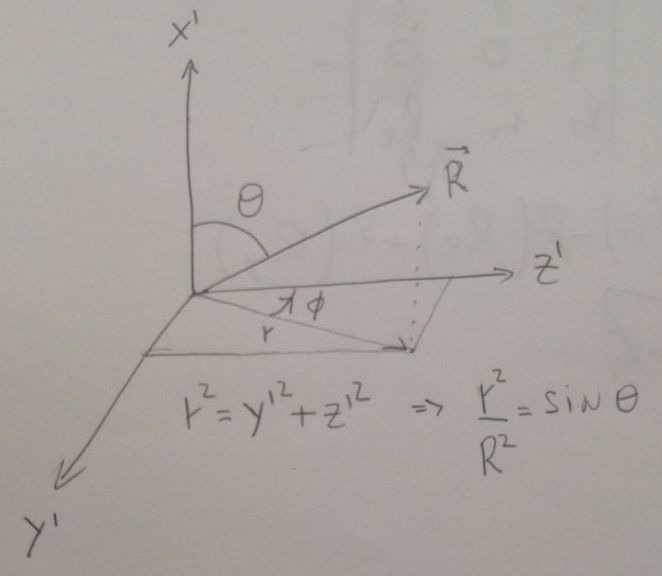 x'
θ
R⃗
z'
ϕ
r
r² = y'² + z'² ⇒ r²/R² = sin θ
y'